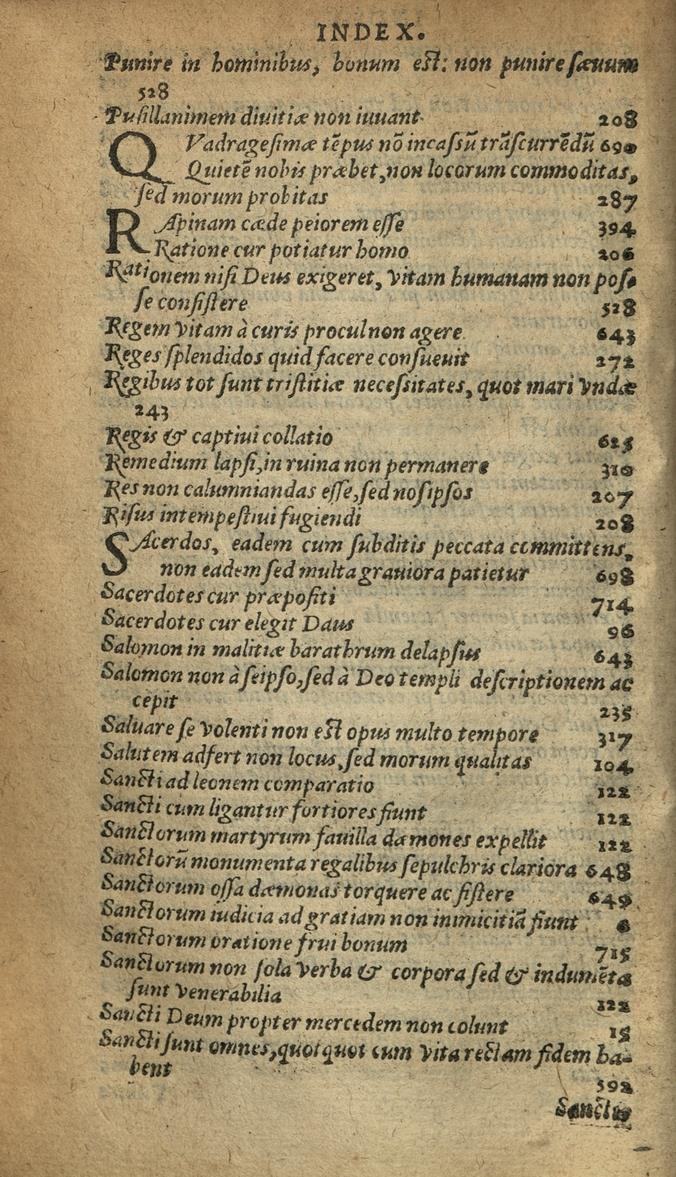 INDEX.
Punire in hominibus, bonum est: non punire sæuum
528
Pusillanimem diuitiæ non iuuant 208
QVadragesimæ tẽpus nõ incassũ trãscurrẽdũ 690
Quietẽ nobis præbet, non locorum commoditas,
sed morum probitas 287
RApinam cæde peiorem esse 394
Ratione cur potiatur homo 206
Rationem nisi Deus exigeret, vitam humanam non pos-
se consistere 528
Regem vitam à curis procul non agere 643
Reges splendidos quid facere consueuit 272
Regibus tot sunt tristitiæ necessitates, quot mari vndæ
243
Regis & captiui collatio 625
Remedium lapsi, in ruina non permanere 310
Res non calumniandas esse, sed nosipsos 207
Risus intempestiui fugiendi 208
SAcerdos, eadem cum subditis peccata committens,
non eadem sed multa grauiora patietur 698
Sacerdotes cur præpositi 714
Sacerdotes cur elegit Daus 96
Salomon in malitiæ barathrum delapsus 643
Salomon non à seipso, sed à Deo templi descriptionem ac
cepit 235
Saluare se volenti non est opus multo tempore 317
Salutem adfert non locus, sed morum qualitas 104
Sancti ad leonem comparatio 122
Sancti cum ligantur fortiores fiunt 122
Sanctorum martyrum fauilla dæmones expellit 122
Sanctorũ monumenta regalibus sepulchris clariora 648
Sanctorum ossa dæmonas torquere ac sistere 649
Sanctorum iudicia ad gratiam non inimicitiã fiunt 6
Sanctorum oratione frui bonum 715
Sanctorum non sola verba & corpora sed & indumẽta
sunt venerabilia 122
Sancti Deum propter mercedem non colunt 15
Sancti sunt omnes, quotquot cum vita rectam fidem ha-
bent 592